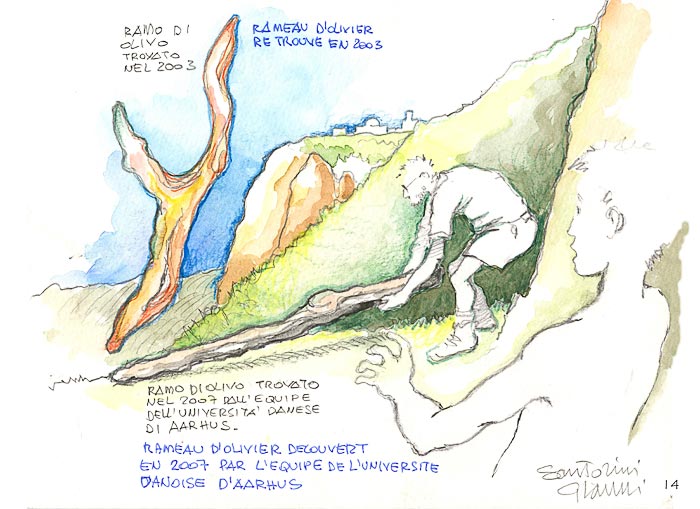 RAMO DI
OLIVO
TROVATO
NEL 2003
RAMEAU D'OLIVIER
RETROUVE EN 2003
RAMO DI OLIVO TROVATO
NEL 2007 DALL'EQUIPE
DELL'UNIVERSITA' DANESE
DI AARHUS.
RAMEAU D'OLIVIER DECOUVERT
EN 2007 PAR L'EQUIPE DE L'UNIVERSITE
DANOISE D'AARHUS
Santorini
Gianni
14